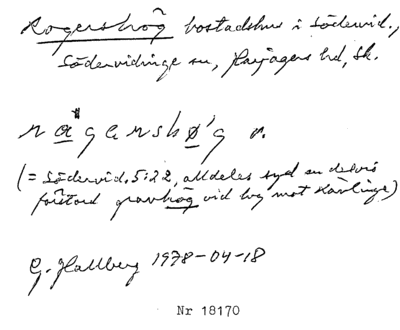 Rogershög bostadshus i Södervid.,
Södervidinge sn, Harjagers hd, Sk.
rågenshø'g r.
(= Södervid. 5:22, alldeles syd en delvis
förstörd gravhög vid väg mot Kävlinge)
G. Hallberg 1978-04-18
Nr 18170